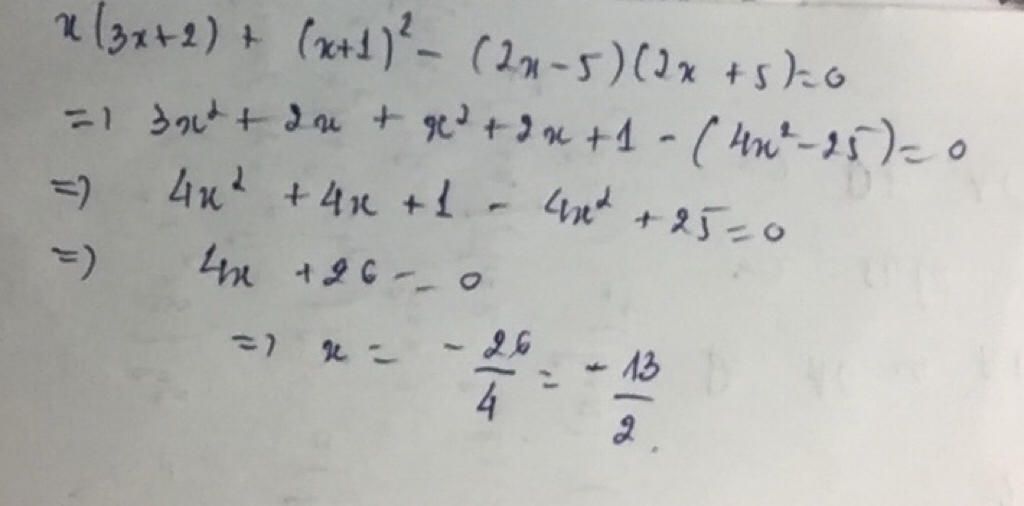 x(3x+2) + (x+1)² - (2x-5)(2x+5)=0
=> 3x² + 2x + x² + 2x + 1 - (4x² - 25) = 0
=> 4x² + 4x + 1 - 4x² + 25 = 0
=> 4x + 26 = 0
=> x = - 26/4 = - 13/2.